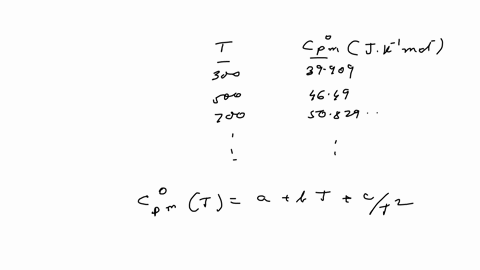 T C°pm (J.K⁻¹mol⁻)
300 39.909
500 46.49
700 50.829 ..
⋮ ⋮
C°pm (T) = a + b T + c/T²